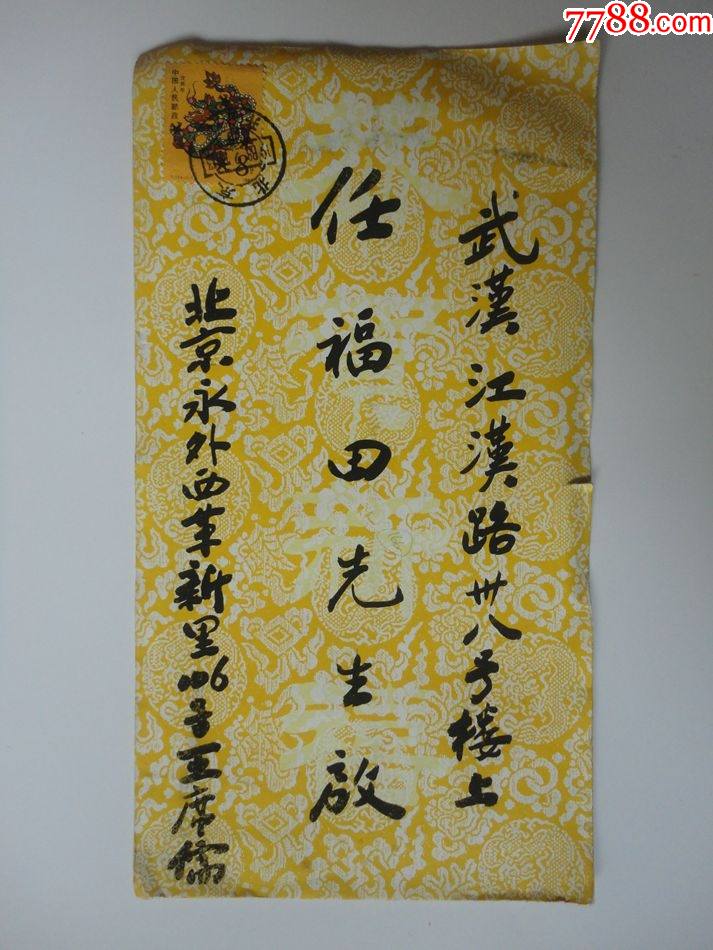 7788.com
中国人民邮政
武漢江漢路卅八号楼上
任福田先生啟
北京永外西革新里106号王席儒
北京
恭賀新禧